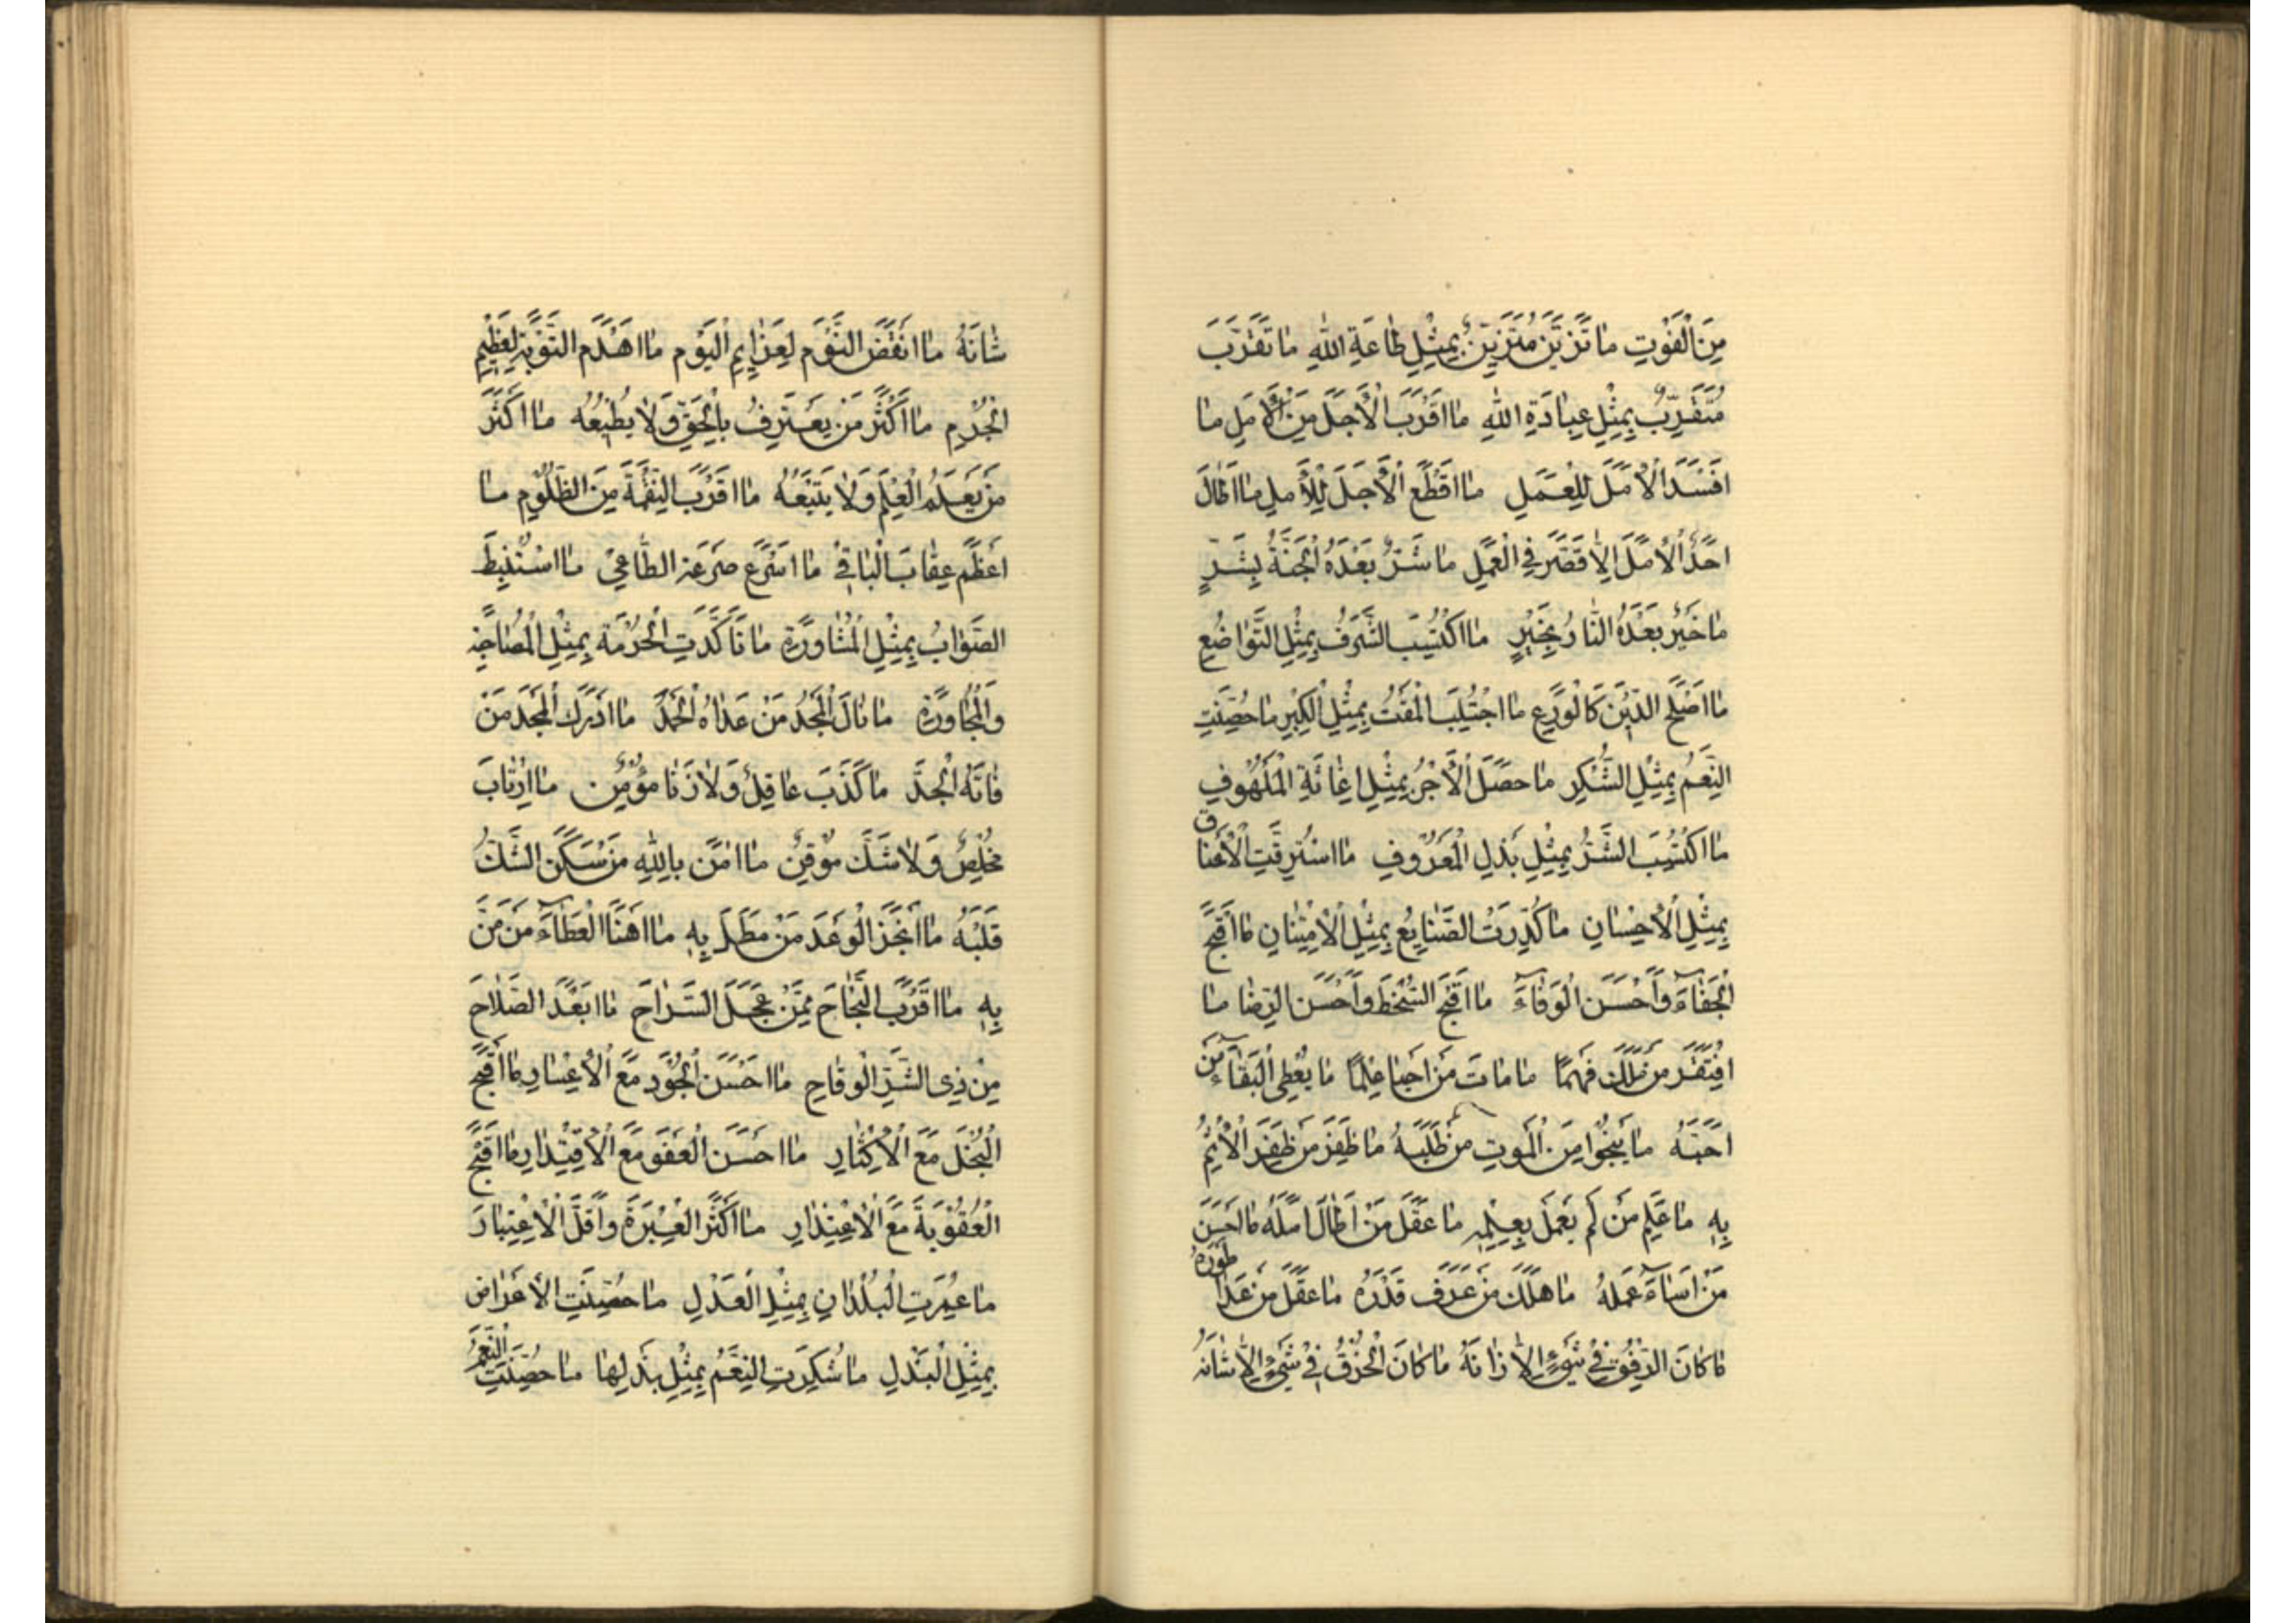 مِنَ الْفَوْتِ مٰا تَزَيَّنَ مُتَزَيِّنٌ بِمِثْلِ طٰاعَةِ اللهِ مٰا تَقَرَّبَ
مُتَقَرِّبٌ بِمِثْلِ عِبٰادَةِ اللهِ مٰا اَقْرَبَ الْاَجَلَ مِنَ الْاَمَلِ مٰا
اَفْسَدَ الْاَمَلَ لِلْعَمَلِ مٰا اَقْطَعَ الْاَجَلَ لِلْاَمَلِ مٰا اَطٰالَ
اَحَدٌ الْاَمَلَ اِلّٰا قَصَّرَ فِي الْعَمَلِ مٰا شَرٌّ بَعْدَهُ الْجَنَّةُ بِشَرٍّ
مٰا خَيْرٌ بَعْدَهُ النّٰارُ بِخَيْرٍ مٰا اكْتُسِبَ الشَّرَفُ بِمِثْلِ التَّوٰاضُعِ
مٰا اَصْلَحَ الدّٖينَ كَالْوَرَعِ مٰا اجْتُلِبَ الْمَقْتُ بِمِثْلِ الْكِبْرِ مٰا حُصِّنَتِ
النِّعَمُ بِمِثْلِ الشُّكْرِ مٰا حَصَلَ الْاَجْرُ بِمِثْلِ اِغٰاثَةِ الْمَلْهُوفِ
مٰا اكْتُسِبَ الشُّكْرُ بِمِثْلِ بَذْلِ الْمَعْرُوفِ مٰا اسْتُرِقَّتِ الْاَعْنٰاق
بِمِثْلِ الْاِحْسٰانِ مٰا كُدِّرَتِ الصَّنٰايِعُ بِمِثْلِ الْاِمْتِنٰانِ مٰا اَقْبَحَ
الْجَفٰآءَ وَاَحْسَنَ الْوَفٰآءَ مٰا اَقْبَحَ السُّخْطَ وَاَحْسَنَ الرِّضٰا مٰا
افْتَقَرَ مَنْ مَلَكَ فَهْمًا مٰا مٰاتَ مَنْ اَحْيٰا عِلْمًا مٰا يُعْطَى الْبَقٰآءَ مَنْ
اَحَبَّهُ مٰا يَنْجُوا مِنَ الْمَوْتِ مَنْ طَلَبَهُ مٰا ظَفِرَ مَنْ ظَفِرَ الْاِثْمُ
بِهٖ مٰا عَلِمَ مَنْ لَمْ يَعْمَلْ بِعِلْمِهٖ مٰا عَقَلَ مَنْ اَطٰالَ اَمَلَهُ مٰا اَحْسَنَ
مَنْ اَسٰآءَ عَمَلَهُ مٰا هَلَكَ مَنْ عَرَفَ قَدْرَهُ مٰا عَقَلَ مَنْ عَدٰا طَوْرَهُ
مٰا كٰانَ الرِّفْقُ فٖي شَيْءٍ اِلّٰا زٰانَهُ مٰا كٰانَ الْخُرْقُ فٖي شَيْءٍ اِلّٰا شٰانَهُ
شٰانَهُ مٰا اَنْقَضَ النَّوْمَ لِعَزٰايِمِ الْيَوْمِ مٰا اَهْدَمَ التَّوْبَةِ لِعَظٖيمِ
الْجُرْمِ مٰا اَكْثَرَ مَنْ يَعْتَرِفُ بِالْحَقِّ وَلٰا يُطٖيعُهُ مٰا اَكْثَرَ
مَنْ يَعْلَمُ الْعِلْمَ وَلٰا يَتْبَعُهُ مٰا اَقْرَبَ النِّقْمَةَ مِنَ الظَّلُومِ مٰا
اَعْظَمَ عِقٰابَ الْبٰاغٖي مٰا اَسْرَعَ صَرْعَةَ الطّٰاغٖي مٰا اسْتُنْبِطَ
الصَّوٰابُ بِمِثْلِ الْمُشٰاوَرَةِ مٰا تَاَكَّدَتِ الْحُرْمَةُ بِمِثْلِ الْمُصٰاحَبَةِ
وَالْمُجٰاوَرَةِ مٰا نٰالَ الْمَجْدَ مَنْ عَدٰاهُ الْحَمْدُ مٰا اَدْرَكَ الْمَجْدَ مَنْ
فٰاتَهُ الْجِدُّ مٰا كَذَبَ عٰاقِلٌ وَلٰا زَنٰا مُؤْمِنٌ مٰا ارْتٰابَ
مُخْلِصٌ وَلٰا شَكَّ مُوقِنٌ مٰا اٰمَنَ بِاللهِ مَنْ سَكَنَ الشَّكُّ
قَلْبَهُ مٰا اَنْجَزَ الْوَعْدَ مَنْ مَطَلَ بِهٖ مٰا اَهْنَاَ الْعَطٰآءَ مَنْ مَنَّ
بِهٖ مٰا اَقْرَبَ النَّجٰاحَ مِمَّنْ عَجَّلَ السَّرٰاحَ مٰا اَبْعَدَ الصَّلٰاحَ
مِنْ ذِي الشَّرِّ الْوَقٰاحِ مٰا اَحْسَنَ الْجُودَ مَعَ الْاِعْسٰارِ مٰا اَقْبَحَ
الْبُخْلَ مَعَ الْاِكْثٰارِ مٰا اَحْسَنَ الْعَفْوَ مَعَ الْاِقْتِدٰارِ مٰا اَقْبَحَ
الْعُقُوبَةَ مَعَ الْاِعْتِذٰارِ مٰا اَكْثَرَ الْعِبْرَةَ وَاَقَلَّ الْاِعْتِبٰارَ
مٰا عُمِرَتِ الْبُلْدٰانِ بِمِثْلِ الْعَدْلِ مٰا حُصِّنَتِ الْاَعْرٰاض
بِمِثْلِ الْبَذْلِ مٰا شُكِرَتِ النِّعَمُ بِمِثْلِ بَذْلِهٰا مٰا حُصِّنَتِ النِّعَمُ